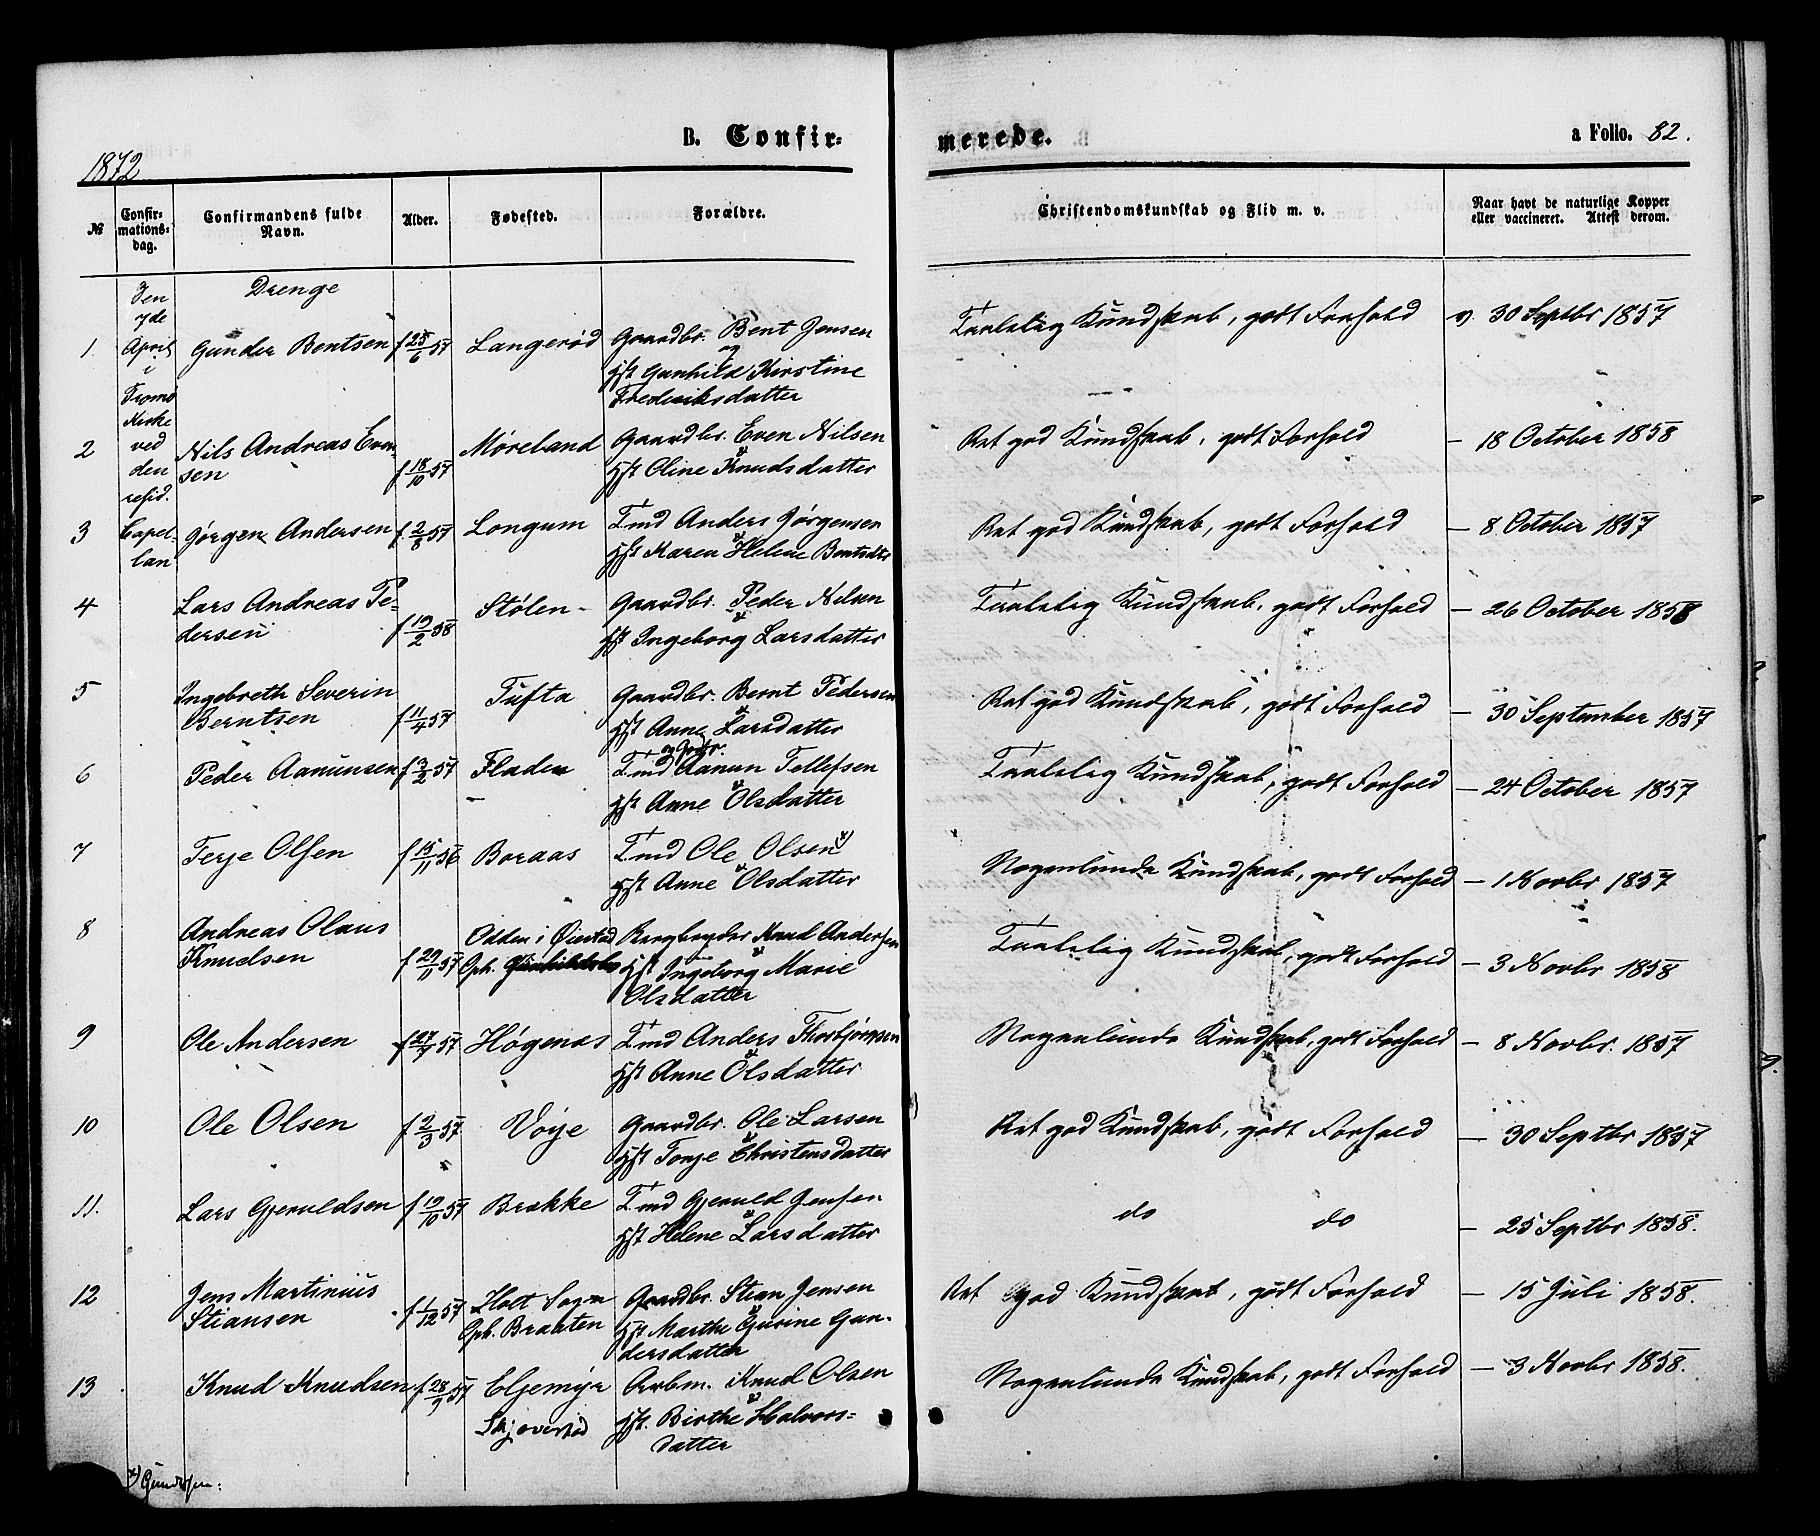 1872
B. Confir-
merede.
a Folio. 82.
№
Confir-
mations-
dag.
Confirmandens fulde
Navn.
Alder.
Fødested.
Forældre.
Christendomskundskab og Flid m. v.
Naar havt de naturlige Kopper
eller vaccineret. Attest derom.
Den
7de
April
i
Tromø
Kirke
ved
den
resid.
Capel-
lan
Drenge
1. Gunder Bentsen f 25/6 57 Langerød Gaardbr. Bent Jensen
og
Hst Gunhild Kirstine
Frederiksdatter
Taalelig Kundskab, godt Forhold v. 30 Septbr 1857
2 Nils Andreas Even-
sen f 18/10 57 Møreland Gaardbr. Even Nilsen
&
Hst Oline Knudsdatter
Ret god Kundskab, godt Forhold — 18 October 1858
3 Jørgen Andersen f 2/8 57 Longum Imd Anders Jørgensen
&
Hst Karen Helene Bentsdtr
Ret god Kundskab, godt Forhold — 8 October 1857
4 Lars Andreas Pe-
dersen f 19/2 58 Stølen - Gaardbr. Peder Nilsen
&
Hst Ingeborg Larsdatter
Taalelig Kundskab, godt Forhold — 26 October 1858
5 Ingebreth Severin
Berntsen f 11/4 57 Tufta Gaardbr. Bernt Pedersen
&
Hst Anne Larsdatter
Ret god Kundskab, godt Forhold — 30 September 1857
6 Peder Aanunsen f 3/2 57 Fladen Imd Aanun Tellefsen
&
Hst Anne Olsdatter
Taalelig Kundskab, godt Forhold — 24 October 1857
7 Terje Olsen f 15/11 56 Boraas Imd Ole Olsen x)
&
Hst Anne Olsdatter
Nogenlunde Kundskab, godt Forhold — 1 Novbr 1857
8 Andreas Olaus
Knudsen f 29/11 57 Odden i Øiestad
Oph. Knud Andersen
Hst Ingeborg Marie
Olsdatter
Taalelig Kundskab, godt Forhold — 3 Novbr 1858
9 Ole Andersen Høgenes Imd Anders Thorbjørnsen
&
Hst Anne Olsdatter
Nogenlunde Kundskab, godt Forhold — 8 Novbr. 1857
10 Ole Olsen f 2/3 57 Voije Gaardbr. Ole Larsen
&
Hst Tonje Christensdatter
Ret god Kundskab, godt Forhold — 30 Septbr 1857
11. Lars Gjeruldsen f 19/10 57 Brekke Imd Gjeruld Jensen
&
Hst Helene Larsdatter
do do — 25 Septbr 1858.
12 Jens Martinius
Stiansen f 1/12 57 Holt Sogn
Oph. Braaten Gaardbr. Stian Jensen
&
Hst Marthe Gurine Gun-
dersdatter
Ret god Kundskab, godt Forhold — 15 Juli 1858.
13 Knud Knudsen f 28/9 57 Eljemyr
Skjovestad Arbm. Knud Olsen
&
Hst. Birthe Halvors-
datter
Nogenlunde Kundskab, godt Forhold — 3 Novbr 1858.
x) Gundersen.